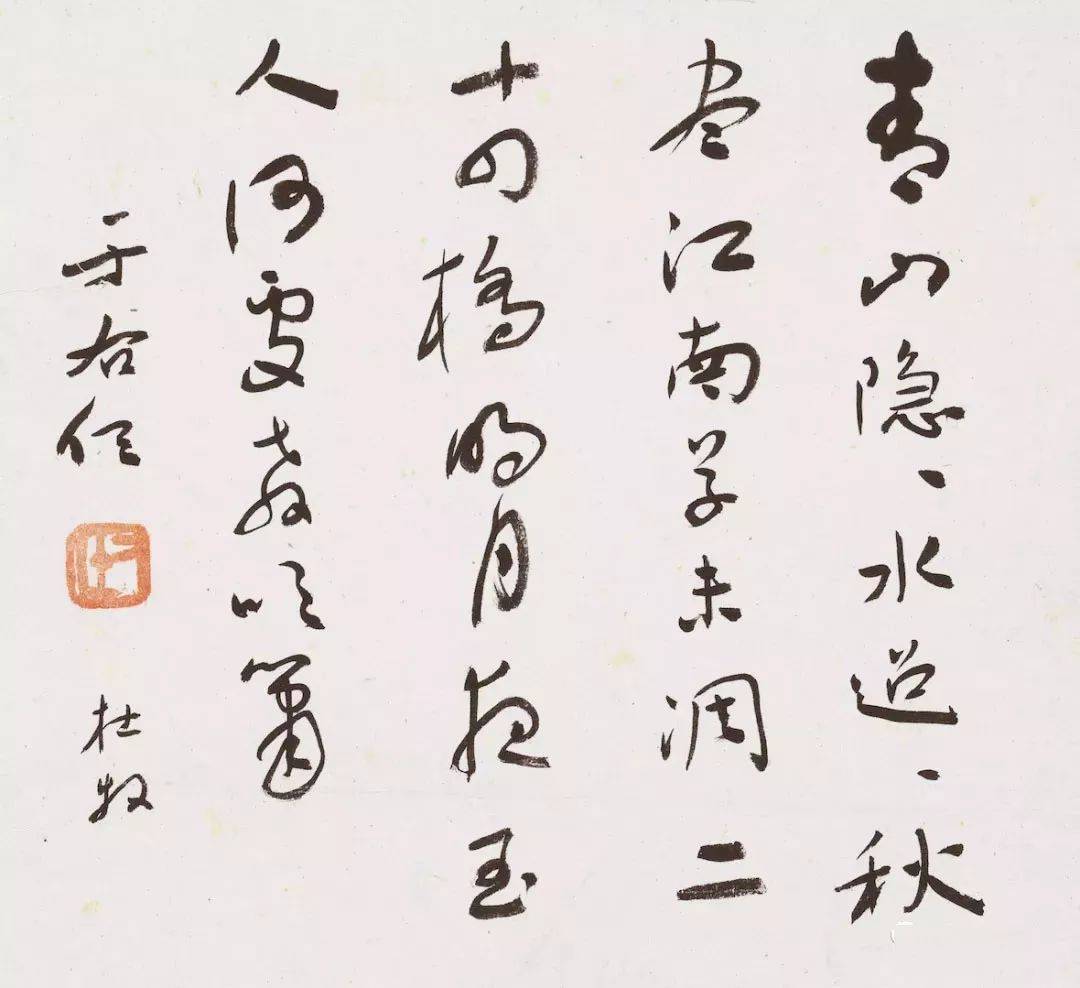 青山隐、水迢、秋
尽江南草未凋二
十四橋明月夜玉
人何處教吹簫
于右任
杜牧